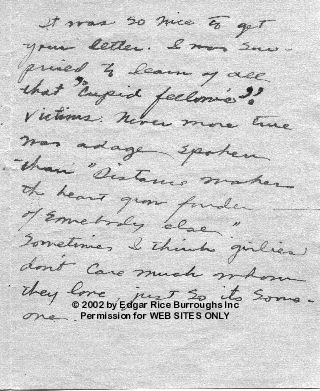 It was so nice to get
your letter. I was sur-
prised to learn of all
that "Cupid felloni's"?
victims. Never more true
was adage spoken
than "Distance makes
the heart grow fonder
of somebody else."
Sometimes I think girlies
don't care much whom
they love just so its some-
one.
© 2002 by Edgar Rice Burroughs Inc
Permission for WEB SITES ONLY